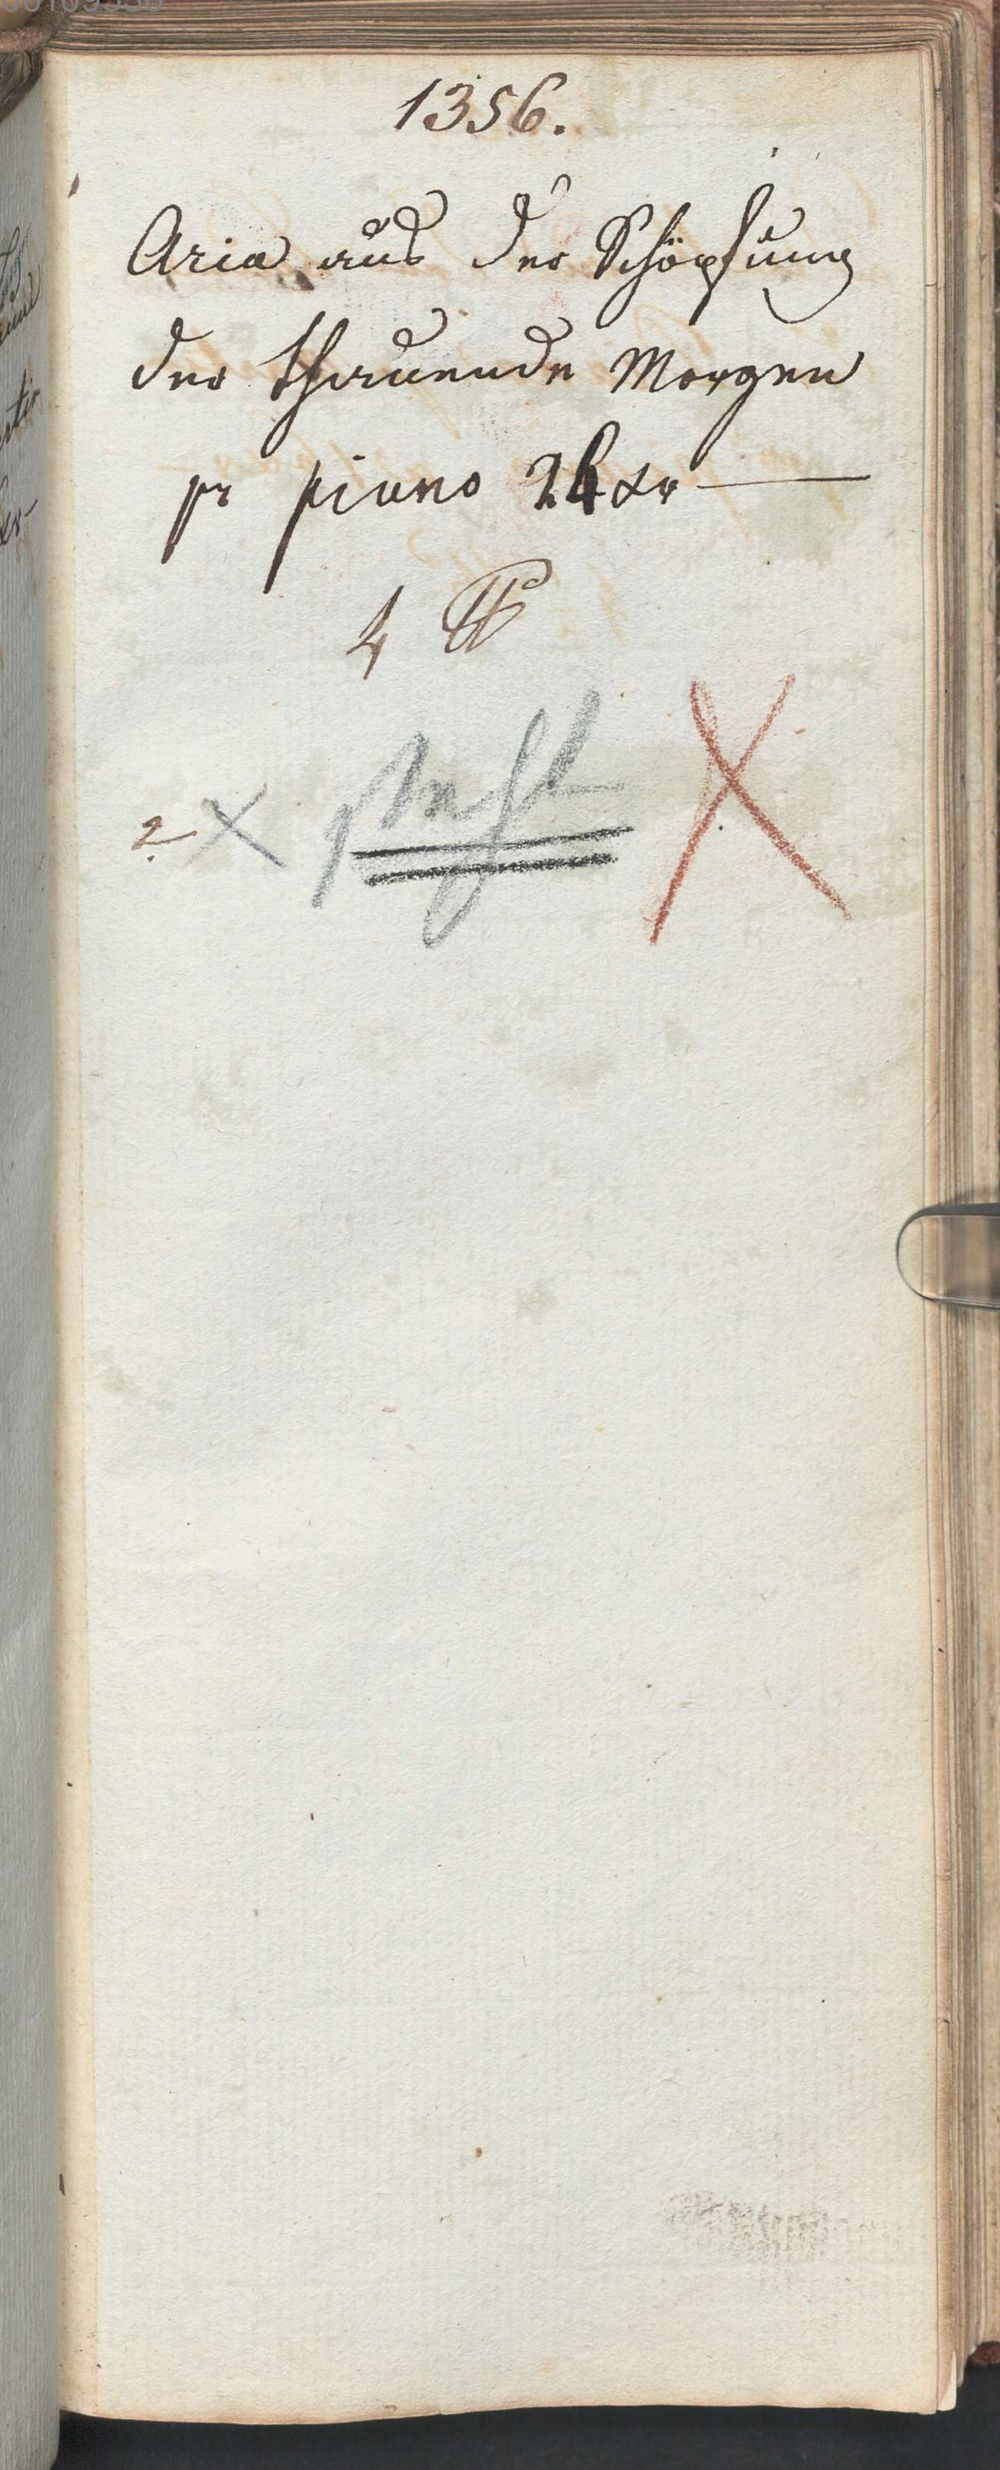 1356.
Aria aus der Schöpfung
der thauende Morgen
pr piano 24 xr
4
2 X X